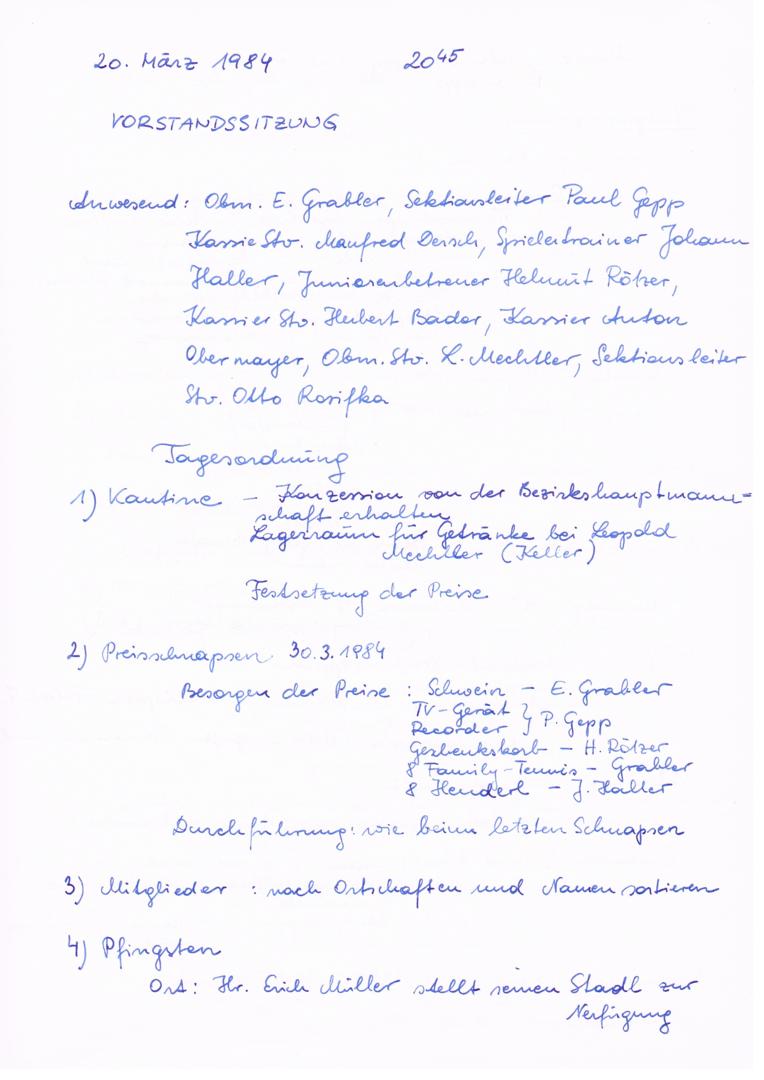 20. März 1984 20⁴⁵
VORSTANDSSITZUNG
Anwesend: Obm. E. Grabler, Sektionsleiter Paul Gepp
Kassie Stv. Manfred Dersch, Spielertrainer Johann
Haller, Juniorenbetreuer Helmut Rötzer,
Kassier Stv. Hubert Bader, Kassier Anton
Obermayer, Obm. Stv. L. Mechtler, Sektionsleiter
Stv. Otto Rosifka
Tagesordnung
1) Kantine – Konzession von der Bezirkshauptmann=
schaft erhalten
Lagerraum für Getränke bei Leopold
Mechtler (Keller)
Festsetzung der Preise
2) Preisschnapsen 30.3.1984
Besorgen der Preise : Schwein – E. Grabler
TV-Gerät }
Recorder } P. Gepp
Geschenkskorb – H. Rötzer
8 Family-Tennis – Grabler
8 Henderl – J. Haller
Durchführung: wie beim letzten Schnapsen
3) Mitglieder : nach Ortschaften und Namen sortieren
4) Pfingsten
Ort: Hr. Erich Müller stellt seinen Stadl zur
Verfügung